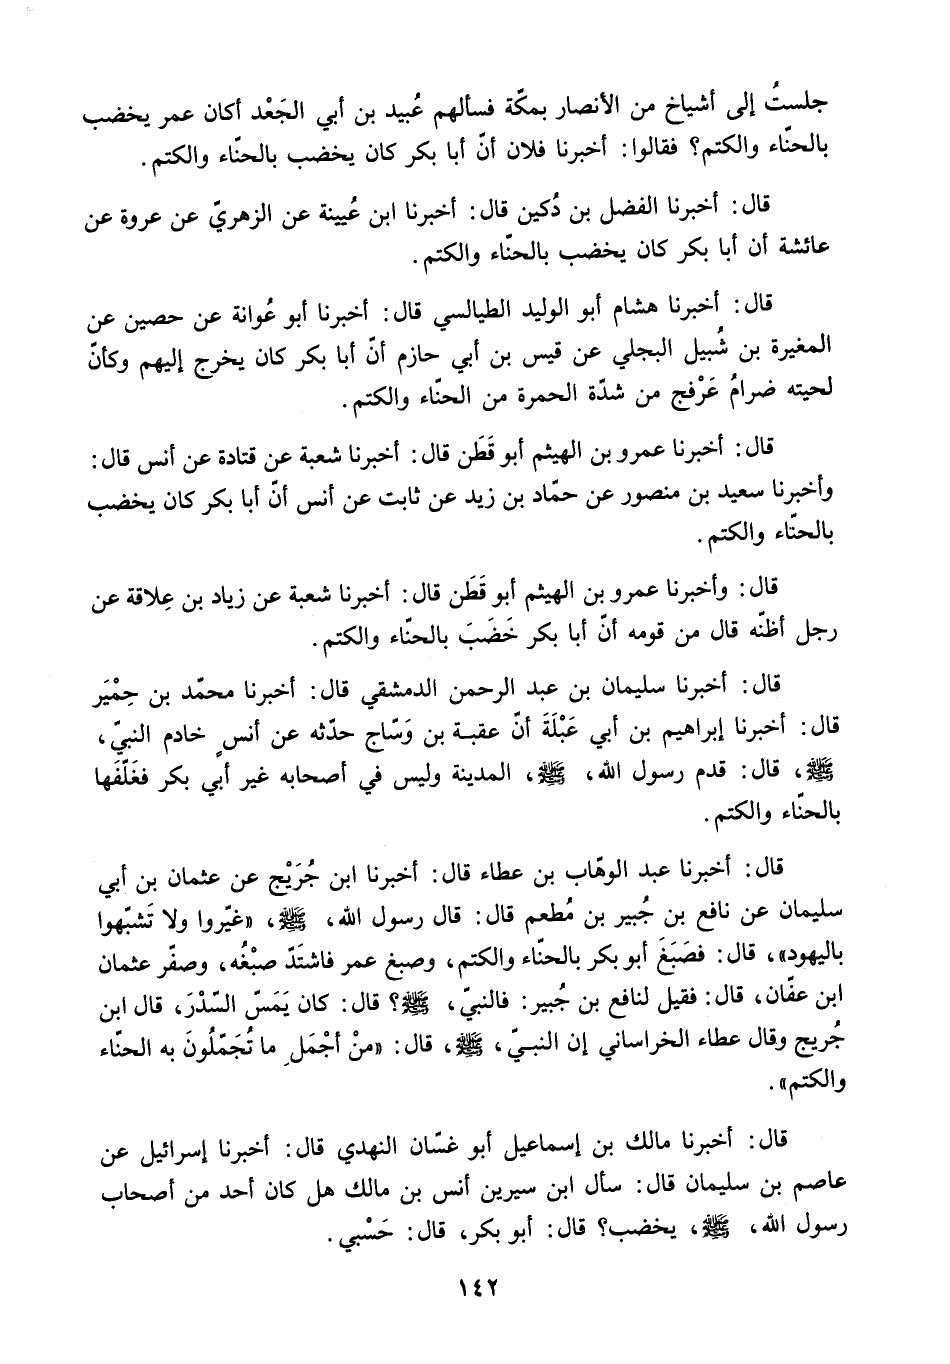 جلستُ إلى أشياخ من الأنصار بمكّة فسألهم عُبيد بن أبي الجَعْد أكان عمر يخضب
بالحنّاء والكتم؟ فقالوا: أخبرنا فلان أنّ أبا بكر كان يخضب بالحنّاء والكتم.
قال: أخبرنا الفضل بن دُكين قال: أخبرنا ابن عُيينة عن الزهريّ عن عروة عن
عائشة أن أبا بكر كان يخضب بالحنّاء والكتم.
قال: أخبرنا هشام أبو الوليد الطيالسي قال: أخبرنا أبو عُوانة عن حصين عن
المغيرة بن شُبيل البجلي عن قيس بن أبي حازم أنّ أبا بكر كان يخرج إليهم وكأنّ
لحيته ضرامُ عَرْفج من شدّة الحمرة من الحنّاء والكتم.
قال: أخبرنا عمرو بن الهيثم أبو قَطَن قال: أخبرنا شعبة عن قتادة عن أنس قال:
وأخبرنا سعيد بن منصور عن حمّاد بن زيد عن ثابت عن أنس أنّ أبا بكر كان يخضب
بالحنّاء والكتم.
قال: وأخبرنا عمرو بن الهيثم أبو قَطَن قال: أخبرنا شعبة عن زياد بن عِلاقة عن
رجل أظنّه قال من قومه أنّ أبا بكر خَضَبَ بالحنّاء والكتم.
قال: أخبرنا سليمان بن عبد الرحمن الدمشقي قال: أخبرنا محمّد بن حِمْيَر
قال: أخبرنا إبراهيم بن أبي عَبْلَةَ أنّ عقبة بن وَسّاج حدّثه عن أنسٍ خادم النبيّ،
ﷺ، قال: قدم رسول الله، ﷺ، المدينة وليس في أصحابه غير أبي بكر فغَلّفَها
بالحنّاء والكتم.
قال: أخبرنا عبد الوهّاب بن عطاء قال: أخبرنا ابن جُرَيْج عن عثمان بن أبي
سليمان عن نافع بن جُبير بن مُطعم قال: قال رسول الله، ﷺ، «غيّروا ولا تَشبّهوا
باليهود»، قال: فصَبَغَ أبو بكر بالحنّاء والكتم، وصبغ عمر فاشتَدّ صبْغُه، وصفّر عثمان
ابن عفّان، قال: فقيل لنافع بن جُبير: فالنبيّ، ﷺ؟ قال: كان يَمَسّ السّدْرَ، قال ابن
جُريج وقال عطاء الخراساني إن النبيّ، ﷺ، قال: «منْ أجْمَلِ ما تُجَمّلُونَ به الحنّاء
والكتم».
قال: أخبرنا مالك بن إسماعيل أبو غسّان النهدي قال: أخبرنا إسرائيل عن
عاصم بن سليمان قال: سأل ابن سيرين أنس بن مالك هل كان أحد من أصحاب
رسول الله، ﷺ، يخضب؟ قال: أبو بكر، قال: حَسْبي.
١٤٢